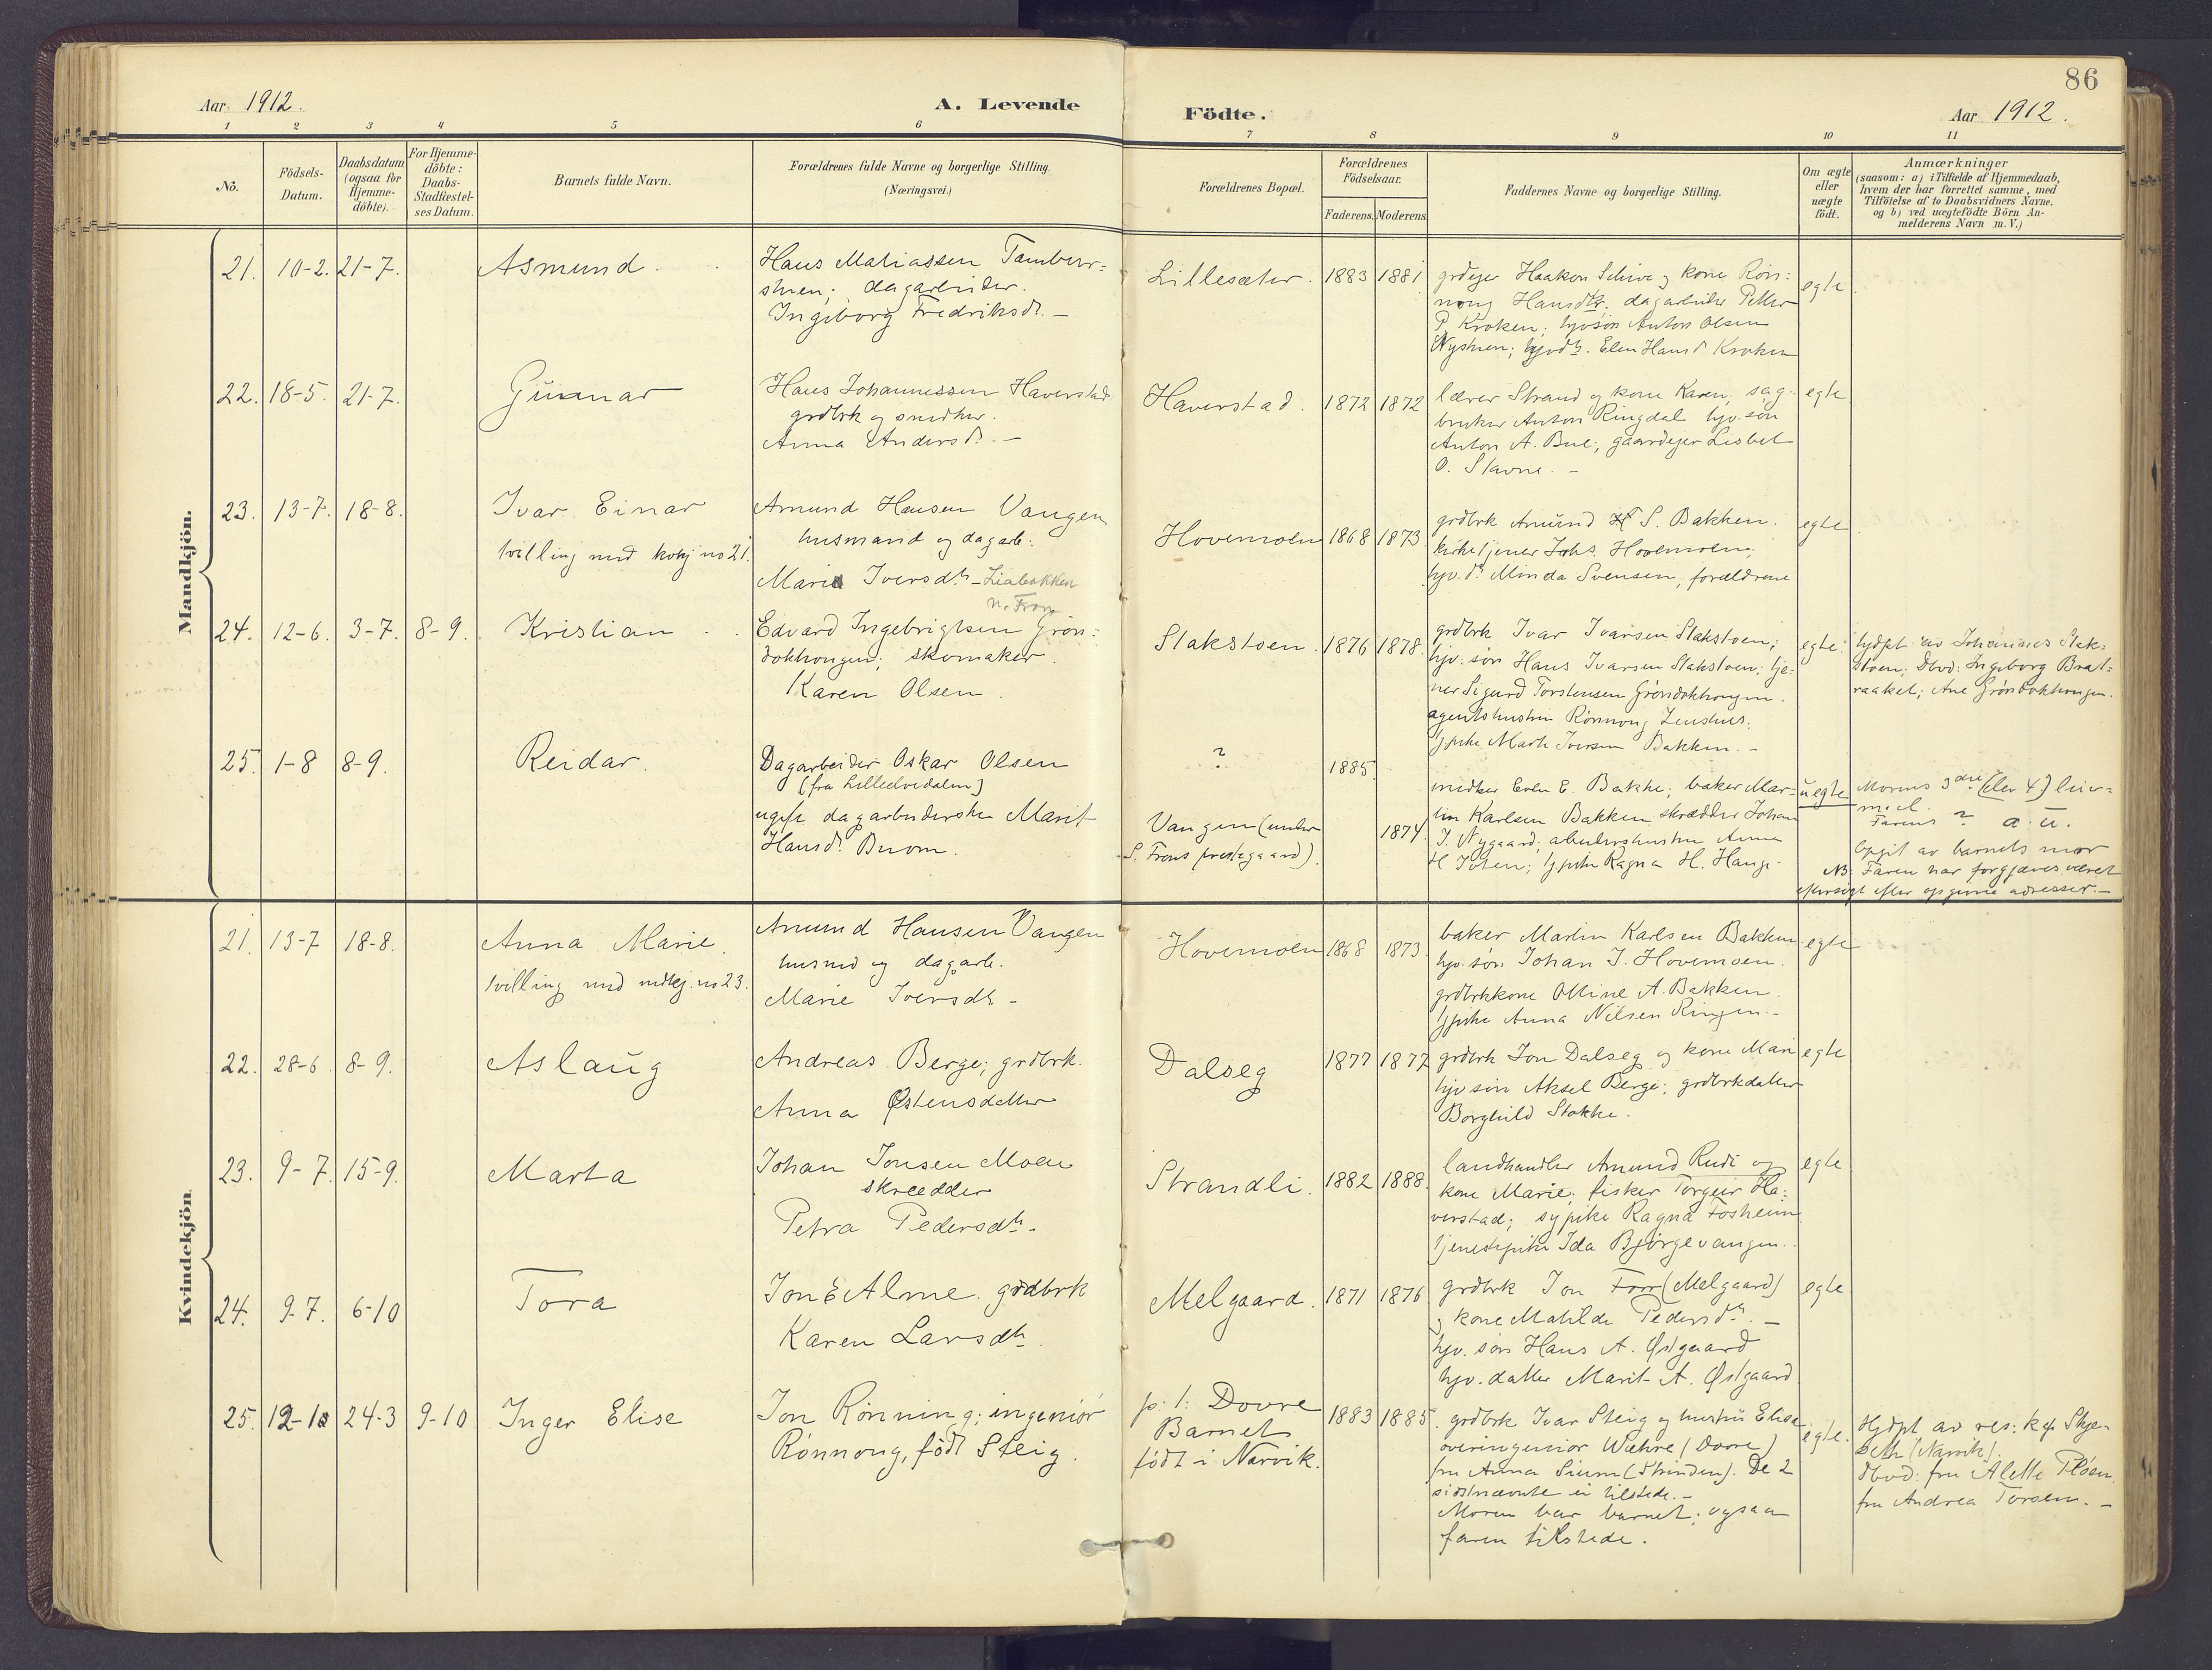 86
Aar 1912.
A. Levende
Födte.
Aar 1912.
1 2 3 4 5 6 7 8 9 10 11
No.
Födsels-
Datum.
Daabsdatum
(ogsaa for
Hjemme-
döbte).
For Hjemme-
döbte:
Daabs-
Stadfæstel-
ses Datum.
Barnets fulde Navn.
Forældrenes fulde Navne og borgerlige Stilling.
(Næringsvei.)
Forældrenes Bopæl.
Forældrenes
Födselsaar.
Faderens. Moderens.
Faddernes Navne og borgerlige Stilling.
Om ægte
eller
uægte
födt.
Anmærkninger
(saasom: a) i Tilfælde af Hjemmedaab,
hvem der har forrettet samme, med
Tilföielse af to Daabsvidners Navne.
og b) ved uægtefödte Börn An-
melderens Navn m. V.)
Mandkjön.
21. 10-2. 21-7.
Asmund.
Hans Matiassen Tambur=
stuen; dagarbeider.
Ingeborg Fredriksdr. –
Lillesæter. 1883 1881
grdeier Haakon Schive og kone Røn=
noug Hansdtr. dagarbeider Petter
P. Kroken; hjv søn Anton Olsen
Nystuen; hjvdtr. Elen Hansdr. Kroken
egte.
22. 18-5. 21-7.
Gunnar
Hans Johannessen Haverstad
grdbrk og snedker.
Anna Andersdr. –
Haverstad. 1872 1872
lærer Strand og kone Karen; sag-
bruker Anton Ringdal hjv. søn
Anton A. Bue; gaardejer Lisbet
O. Stavne. –
egte
23. 13-7. 18-8.
Ivar Einar
tvilling med kvkj no 21.
Amund Hansen Vangen
husmand og dagarb.
Marie Iversdtr – Liabakken
n. Fron
Hovemoen 1868 1873.
grdbrk Amund H S. Bakken.
kirketjener Johs. Hovemoen;
hjv. dr. Minda Svensen, forældrene
egte.
24. 12-6. 3-7. 8-9.
Kristian
Edvard Ingebrigtsen Grøn=
dokhougen; skomaker.
Karen Olsen.
Slakstoen. 1876 1878.
grdbrk Ivar Ivarsen Slakstoen;
hjv. søn Hans Ivarsen Slakstoen; tje=
ner Sigurd Torstensen Grøndokhougen.
agentshustru Rønnoug
Marte Iversen Bakken. –
egte.
hjdpt av Johannes Slak=
stoen; Dbvd: Ingeborg Brat=
raaket; Ane Grøndokhougen.
25. 1-8 8-9.
Reidar.
Dagarbeider Oskar Olsen
(fra Lilleelvedalen)
ugift dagarbeiderske Marit
Hansdr. Buom.
?
Vangen (under
S. Frons prestegaard).
1885.
1874.
snedker Even E. Bakke; baker Mar=
tin Karlsen Bakken, skrædder Johan
J. Nygaard; arbeiderhustru Anna
H. Ragna H. Hauge.
uegte
Morens 3die (eller 4.) leier=
maal.
Farens ? a. u.
Opgit av barnets mor
NB: Faren har forgjæves været
eftersøgt efter opgivne adresser. –
Kvindekjön.
21. 13-7 18-8.
Anna Marie.
tvilling med mdkj. no 23.
Amund Hansen Vangen
husmd og dagarb.
Marie Iversdtr –
Hovemoen 1868 1873.
baker Martin Karlsen Bakken
hjv. søn Johan J. Hovemoen.
grdbrkkone Oline A. Bakken.
Anna Nilsen Ringen. –
egte
22. 28-6. 8-9.
Aslaug
Andreas Berge; grdbrk.
Anna Østensdatter
Dalseg 1877 1877
grdbrk Jon Dalseg og kone Mari
hjv søn Aksel Berge; grdbrkdatter
Borghild Stokke.
egte
23. 9-7. 15-9.
Marta
Johan Jonsen Moen
skrædder
Petra Pedersdtr.
Strandli. 1882 1888.
landhandler Amund Rudi og
kone Marie; fisker Torgeir Ha=
verstad; sypike Ragna Fosheim
tjenestepike Ida Bjørgevangen.
egte
24. 9-7. 6-10
Tora
Jon E Alme. grdbrk
Karen Larsdtr.
Melgaard. 1871 1876
grdbrk Jon Forr (Melgaard)
og kone Matilde Pedersdtr. –
hjv. søn Hans A. Østgaard
hjv. datter Marit A. Østgaard
egte
25. 12-10 24-3 9-10
Inger Elise
Jon Rønning; ingeniør
Rønnoug, født Steig.
p: t: Dovre
Barnet
født i Narvik.
1883 1885.
grdbrk Ivar Steig og hustru Elise
overingeniør Wæhre (Dovre)
fru Anna Sium (Strinden). De 2
sidstnævnte ei tilstede. –
Moren bar barnet; ogsaa
faren tilstede.
egte.
Hjdpt av res: kap Skje-
seth (Narvik).
Dbvd: fru Alette Pløen.
fru Andrea Torsen. –